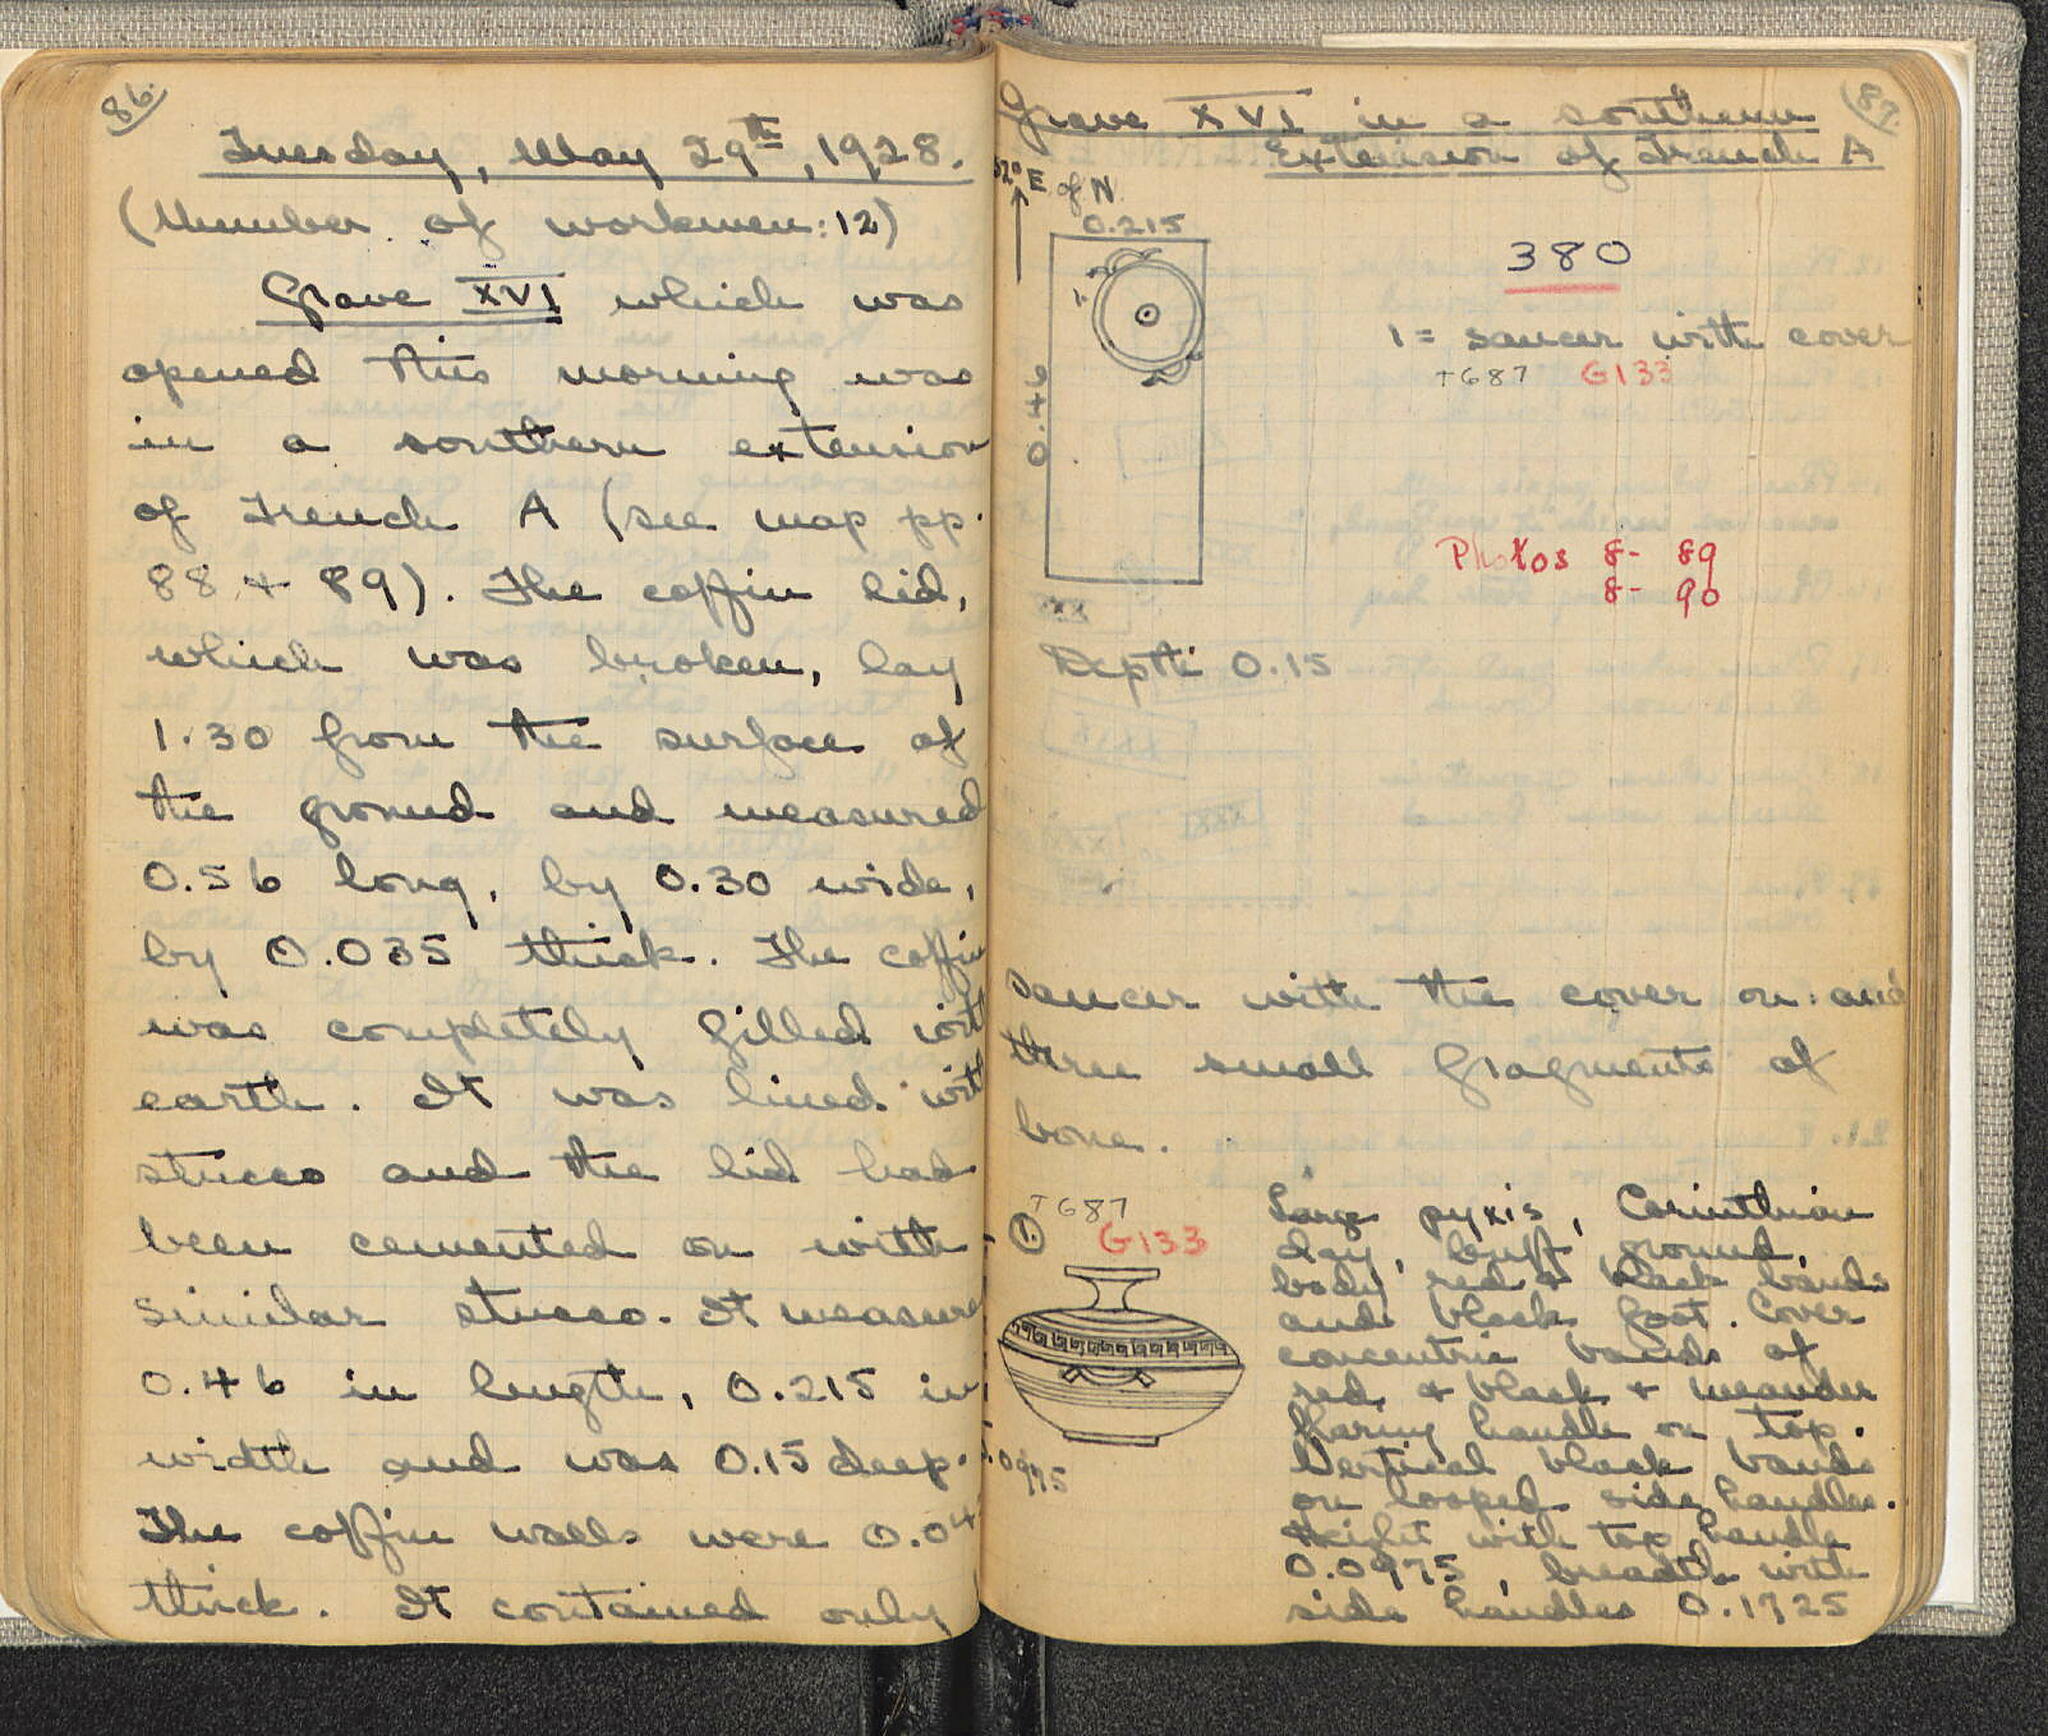 86.
Tuesday, May 29th, 1928.
(Number of workmen: 12)
Grave XVI which was
opened this morning was
in a southern extension
of Trench A (see map pp.
88 + 89). The coffin lid,
which was broken, lay
1.30 from the surface of
the ground and measured
0.56 long, by 0.30 wide,
by 0.035 thick. The coffin
was completely filled with
earth. It was lined with
stucco and the lid had
been cemented on with
similar stucco. It measure
0.46 in length, 0.215 in
width and was 0.15 deep.
The coffin walls were 0.04
thick. It contained only
87.
Grave XVI in a southern
Extension of Trench A
E of N.
0.215
380
1.
1 = saucer with cover
T687 G133
0.46
Photos 8- 89
8- 90
Depth 0.15
saucer with the cover on: and
three small fragments of
bone.
T687
1. G133
Large pyxis, Corinthian
clay, buff ground,
body red + black bands
and black foot. Cover
concentric bands of
red + black + meander
flaring handle on top.
Vertical black bands
on looped side handles.
Height with top handle
0.0975, breadth with
side handles 0.1725
.0975